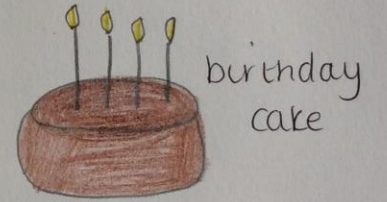 birthday
cake